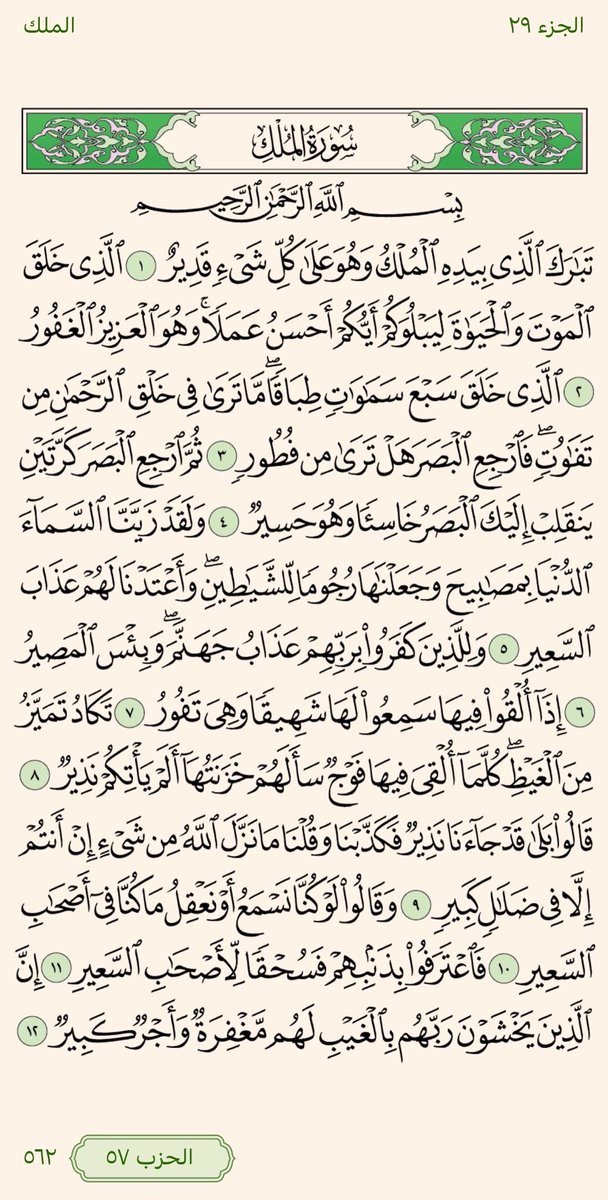 الجزء ٢٩
الملك
سُورَةُ المُلْكِ
بِسْمِ ٱللَّهِ ٱلرَّحْمَٰنِ ٱلرَّحِيمِ
تَبَٰرَكَ ٱلَّذِى بِيَدِهِ ٱلْمُلْكُ وَهُوَ عَلَىٰ كُلِّ شَىْءٍ قَدِيرٌ ١ ٱلَّذِى خَلَقَ
ٱلْمَوْتَ وَٱلْحَيَوٰةَ لِيَبْلُوَكُمْ أَيُّكُمْ أَحْسَنُ عَمَلًا ۚ وَهُوَ ٱلْعَزِيزُ ٱلْغَفُورُ
٢ ٱلَّذِى خَلَقَ سَبْعَ سَمَٰوَٰتٍ طِبَاقًا ۖ مَّا تَرَىٰ فِى خَلْقِ ٱلرَّحْمَٰنِ مِن
تَفَٰوُتٍ ۖ فَٱرْجِعِ ٱلْبَصَرَ هَلْ تَرَىٰ مِن فُطُورٍ ٣ ثُمَّ ٱرْجِعِ ٱلْبَصَرَ كَرَّتَيْنِ
يَنقَلِبْ إِلَيْكَ ٱلْبَصَرُ خَاسِئًا وَهُوَ حَسِيرٌ ٤ وَلَقَدْ زَيَّنَّا ٱلسَّمَآءَ
ٱلدُّنْيَا بِمَصَٰبِيحَ وَجَعَلْنَٰهَا رُجُومًا لِّلشَّيَٰطِينِ ۖ وَأَعْتَدْنَا لَهُمْ عَذَابَ
ٱلسَّعِيرِ ٥ وَلِلَّذِينَ كَفَرُوا۟ بِرَبِّهِمْ عَذَابُ جَهَنَّمَ ۖ وَبِئْسَ ٱلْمَصِيرُ
٦ إِذَآ أُلْقُوا۟ فِيهَا سَمِعُوا۟ لَهَا شَهِيقًا وَهِىَ تَفُورُ ٧ تَكَادُ تَمَيَّزُ
مِنَ ٱلْغَيْظِ ۖ كُلَّمَآ أُلْقِىَ فِيهَا فَوْجٌ سَأَلَهُمْ خَزَنَتُهَآ أَلَمْ يَأْتِكُمْ نَذِيرٌ ٨
قَالُوا۟ بَلَىٰ قَدْ جَآءَنَا نَذِيرٌ فَكَذَّبْنَا وَقُلْنَا مَا نَزَّلَ ٱللَّهُ مِن شَىْءٍ إِنْ أَنتُمْ
إِلَّا فِى ضَلَٰلٍ كَبِيرٍ ٩ وَقَالُوا۟ لَوْ كُنَّا نَسْمَعُ أَوْ نَعْقِلُ مَا كُنَّا فِىٓ أَصْحَٰبِ
ٱلسَّعِيرِ ١٠ فَٱعْتَرَفُوا۟ بِذَنۢبِهِمْ فَسُحْقًا لِّأَصْحَٰبِ ٱلسَّعِيرِ ١١ إِنَّ
ٱلَّذِينَ يَخْشَوْنَ رَبَّهُم بِٱلْغَيْبِ لَهُم مَّغْفِرَةٌ وَأَجْرٌ كَبِيرٌ ١٢
الحزب ٥٧
٥٦٢